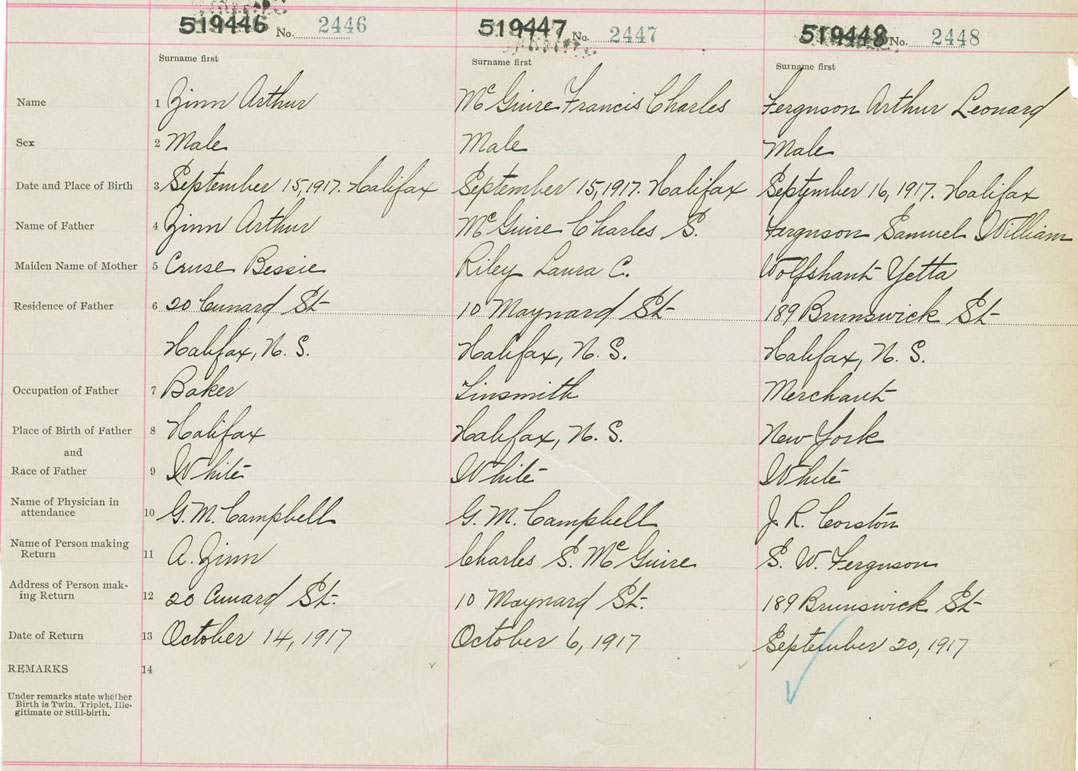 519446 No. 2446 519447 No. 2447 519448 No. 2448
Surname first Surname first Surname first
Name 1 Zinn Arthur McGuire Francis Charles Ferguson Arthur Leonard
Sex 2 Male Male Male
Date and Place of Birth 3 September 15, 1917. Halifax September 15, 1917. Halifax September 16, 1917. Halifax
Name of Father 4 Zinn Arthur McGuire Charles S. Ferguson Samuel William
Maiden Name of Mother 5 Cruse Bessie Riley Laura C. Wolfshant Yetta
Residence of Father 6 20 Cunard St 10 Maynard St 189 Brunswick St
Halifax, N. S. Halifax, N. S. Halifax, N. S.
Occupation of Father 7 Baker Tinsmith Merchant
Place of Birth of Father 8 Halifax Halifax, N. S. New York
and
Race of Father 9 White White White
Name of Physician in
attendance 10 G. M. Campbell G. M. Campbell J. R. Corston
Name of Person making
Return 11 A. Zinn Charles S. McGuire S. W. Ferguson
Address of Person mak-
ing Return 12 20 Cunard St. 10 Maynard St. 189 Brunswick St
Date of Return 13 October 14, 1917 October 6, 1917 September 20, 1917
REMARKS 14
Under remarks state whether
Birth is Twin, Triplet, Ille-
gitimate or Still-birth.